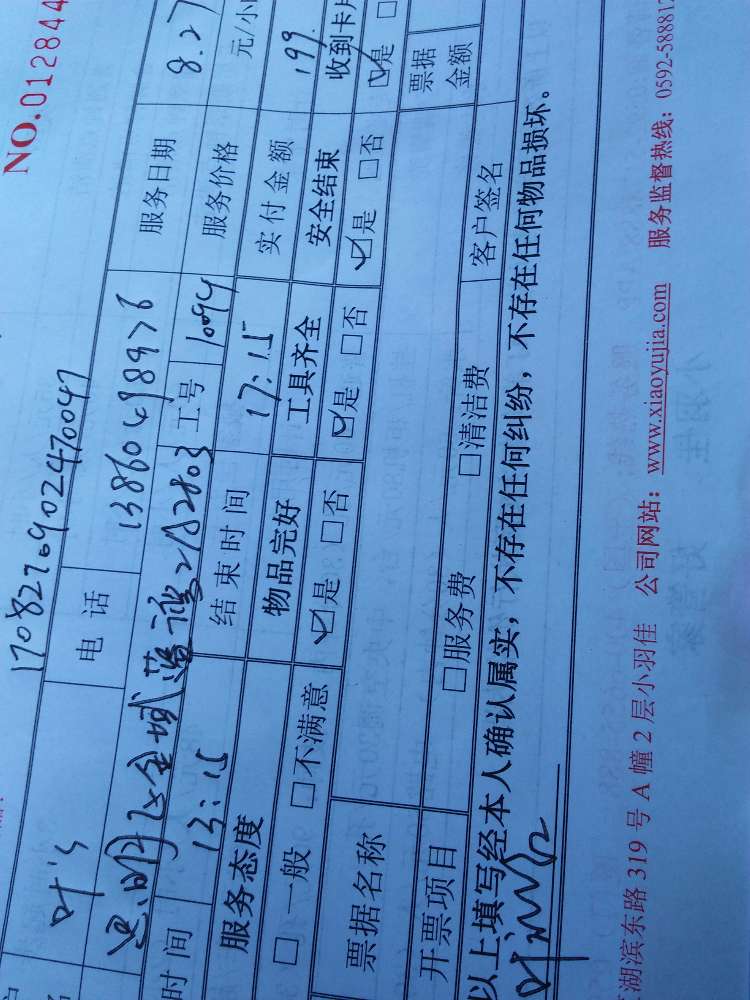 NO.012844
1708276902470047
叶's 电话 13860498976 服务日期 8.27
2803 工号 1094 服务价格 元/小
时间 13:15 结束时间 17:15 实付金额 199
服务态度 物品完好 工具齐全 安全结束 收到卡片
□ 一般 □不满意 ☑是 □否 ☑是 □否 ☑是 □否 ☑是 □
票据名称 票据金额
开票项目 □服务费 □清洁费 客户签名
以上填写经本人确认属实，不存在任何纠纷，不存在任何物品损坏。
湖滨东路 319 号 A 幢 2 层小羽佳 公司网站：www.xiaoyujia.com 服务监督热线：0592-5888817